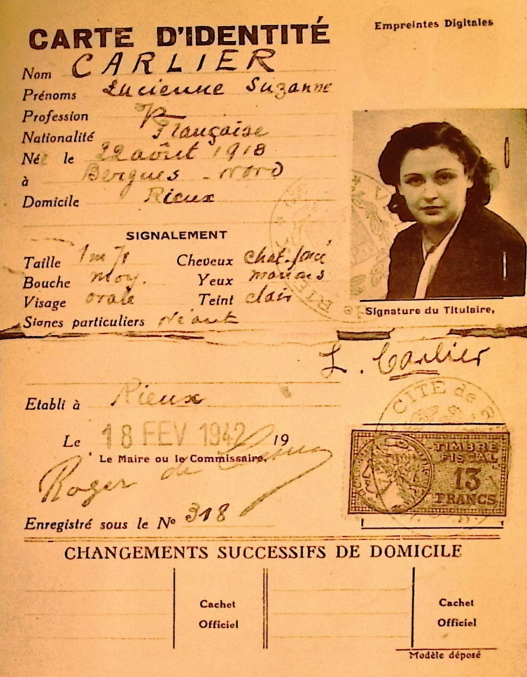 CARTE D'IDENTITÉ
Empreintes Digitales
Nom CARLIER
Prénoms Lucienne Suzanne
Profession
Nationalité Française
Née le 22 août 1918
à Bergues - Nord
Domicile Rieux
SIGNALEMENT
Taille 1m 71 Cheveux chat. foncé
Bouche moy. Yeux marrons
Visage ovale Teint clair
Signes particuliers Néant
Signature du Titulaire,
L. Carlier
Etabli à Rieux
CITE de
Le 18 FEV 1942 19
Le Maire ou le Commissaire,
Roger de
TIMBRE FISCAL
13
FRANCS
Enregistré sous le No 318
CHANGEMENTS SUCCESSIFS DE DOMICILE
Cachet Officiel
Cachet Officiel
Modèle déposé